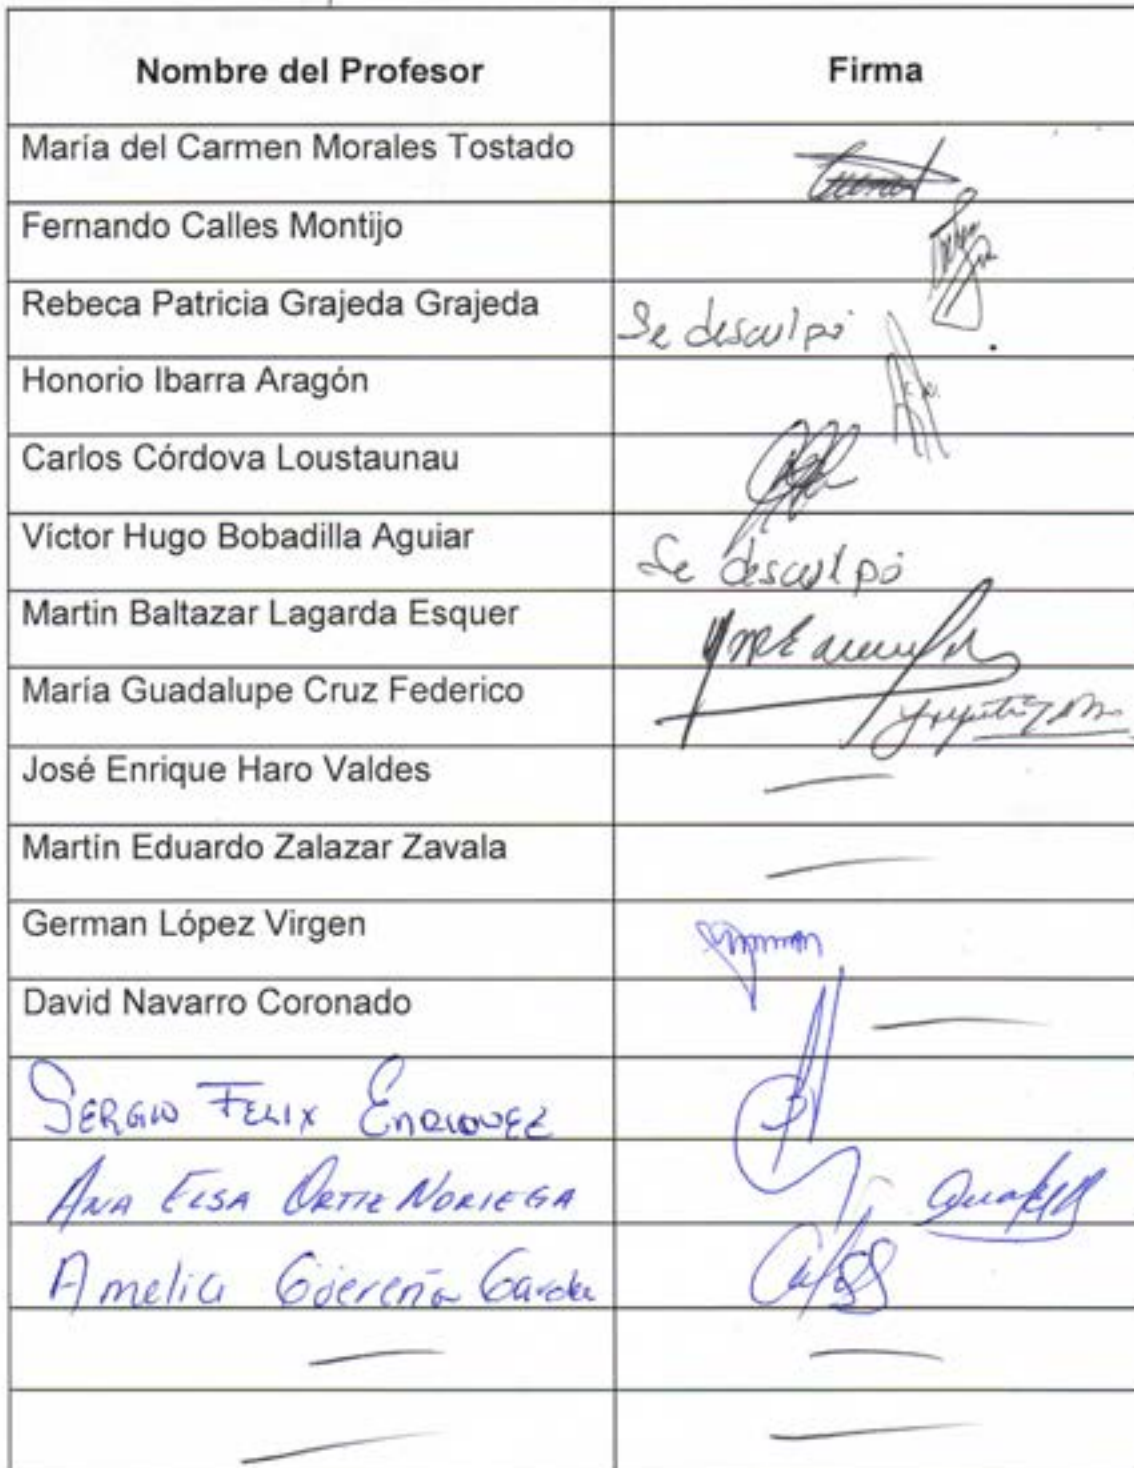 Nombre del Profesor Firma
María del Carmen Morales Tostado
Fernando Calles Montijo
Rebeca Patricia Grajeda Grajeda Se desculpó
Honorio Ibarra Aragón
Carlos Córdova Loustaunau
Víctor Hugo Bobadilla Aguiar Se desculpó
Martin Baltazar Lagarda Esquer
María Guadalupe Cruz Federico
José Enrique Haro Valdes
Martín Eduardo Zalazar Zavala
German López Virgen
David Navarro Coronado
SERGIO FELIX ENRIQUEZ
ANA ELSA ORTIZ NORIEGA
Amelia